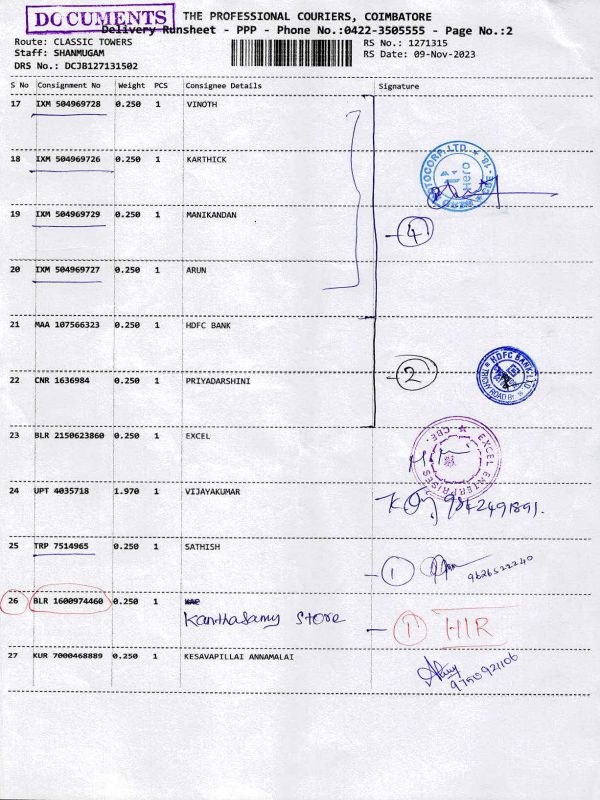 DOCUMENTS
THE PROFESSIONAL COURIERS, COIMBATORE
Delivery Runsheet - PPP - Phone No.:0422-3505555 - Page No.:2
Route: CLASSIC TOWERS
Staff: SHANMUGAM
DRS No.: DCJB127131502
RS No.: 1271315
RS Date: 09-Nov-2023
S No Consignment No Weight PCS Consignee Details Signature
17 IXM 504969728 0.250 1 VINOTH
18 IXM 504969726 0.250 1 KARTHICK
19 IXM 504969729 0.250 1 MANIKANDAN
4
20 IXM 504969727 0.250 1 ARUN
21 MAA 107566323 0.250 1 HDFC BANK
HDFC BANK LTD
2
22 CNR 1636984 0.250 1 PRIYADARSHINI
23 BLR 2150623860 0.250 1 EXCEL
EXCEL ENTERPRISES CBE.
24 UPT 4035718 1.970 1 VIJAYAKUMAR
9842491891.
25 TRP 7514965 0.250 1 SATHISH
1 9626522240
26 BLR 1600974460 0.250 1
Kanthasamy store
1 HIR
27 KUR 7000468889 0.250 1 KESAVAPILLAI ANNAMALAI
9750921106